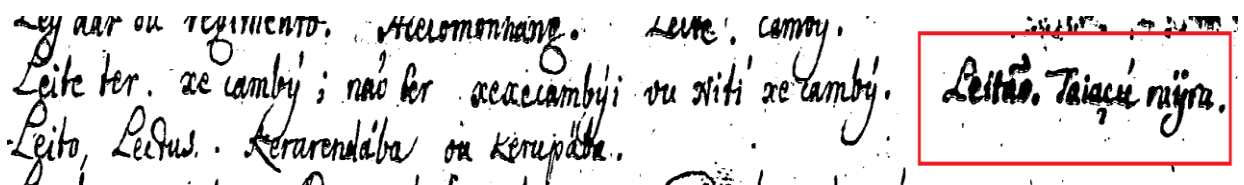 Ley dar ou regimento. Moromonhang. Leite. camby.
Leite ter. xe camby; não ter xexecambýi ou Niti xe camby. Leitão. Taiaçú raýra.
Leito, Lectus. Kerarendába ou Kerupába.